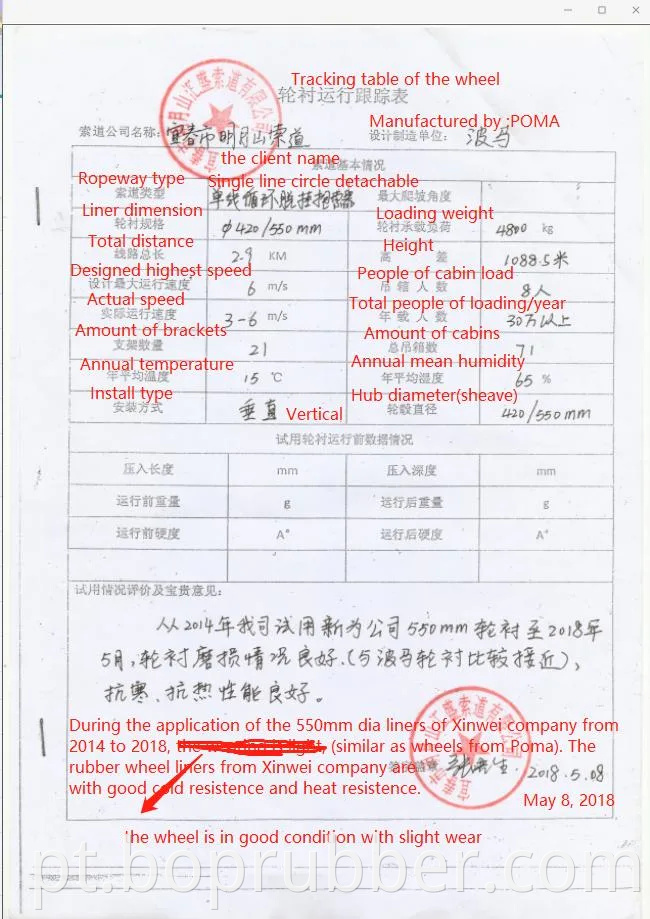 Tracking table of the wheel
轮衬运行跟踪表
Manufactured by :POMA
索道公司名称: 宜春市明月山索道 设计制造单位: 波马
the client name
索道基本情况
Ropeway type Single line circle detachable
索道类型 单线循环脱挂抱索器 最大爬坡角度
Liner dimension Loading weight
轮衬规格 φ420/550mm 轮衬承载负荷 4800 kg
Total distance Height
线路总长 2.9 KM 高 差 1088.5米
Designed highest speed People of cabin load
设计最大运行速度 6 m/s 吊箱人数 8人
Actual speed Total people of loading/year
实际运行速度 3-6 m/s 年载人数 30万以上
Amount of brackets Amount of cabins
支架数量 21 总吊箱数 71
Annual temperature Annual mean humidity
年平均温度 15 ℃ 年平均湿度 65 %
Install type Hub diameter(sheave)
安装方式 垂直 Vertical 轮毂直径 420/550mm
试用轮衬运行前数据情况
压入长度 mm 压入深度 mm
运行前重量 g 运行后重量 g
运行前硬度 A° 运行后硬度 A°
试用情况评价及宝贵意见:
从2014年我司试用新为公司550mm轮衬至2018年
5月,轮衬磨损情况良好.(与波马轮衬比较接近),
抗寒、抗热性能良好。
During the application of the 550mm dia liners of Xinwei company from
2014 to 2018, (similar as wheels from Poma). The
rubber wheel liners from Xinwei company are
with good cold resistence and heat resistence.
2018.5.08
May 8, 2018
the wheel is in good condition with slight wear
pt.boprubber.com